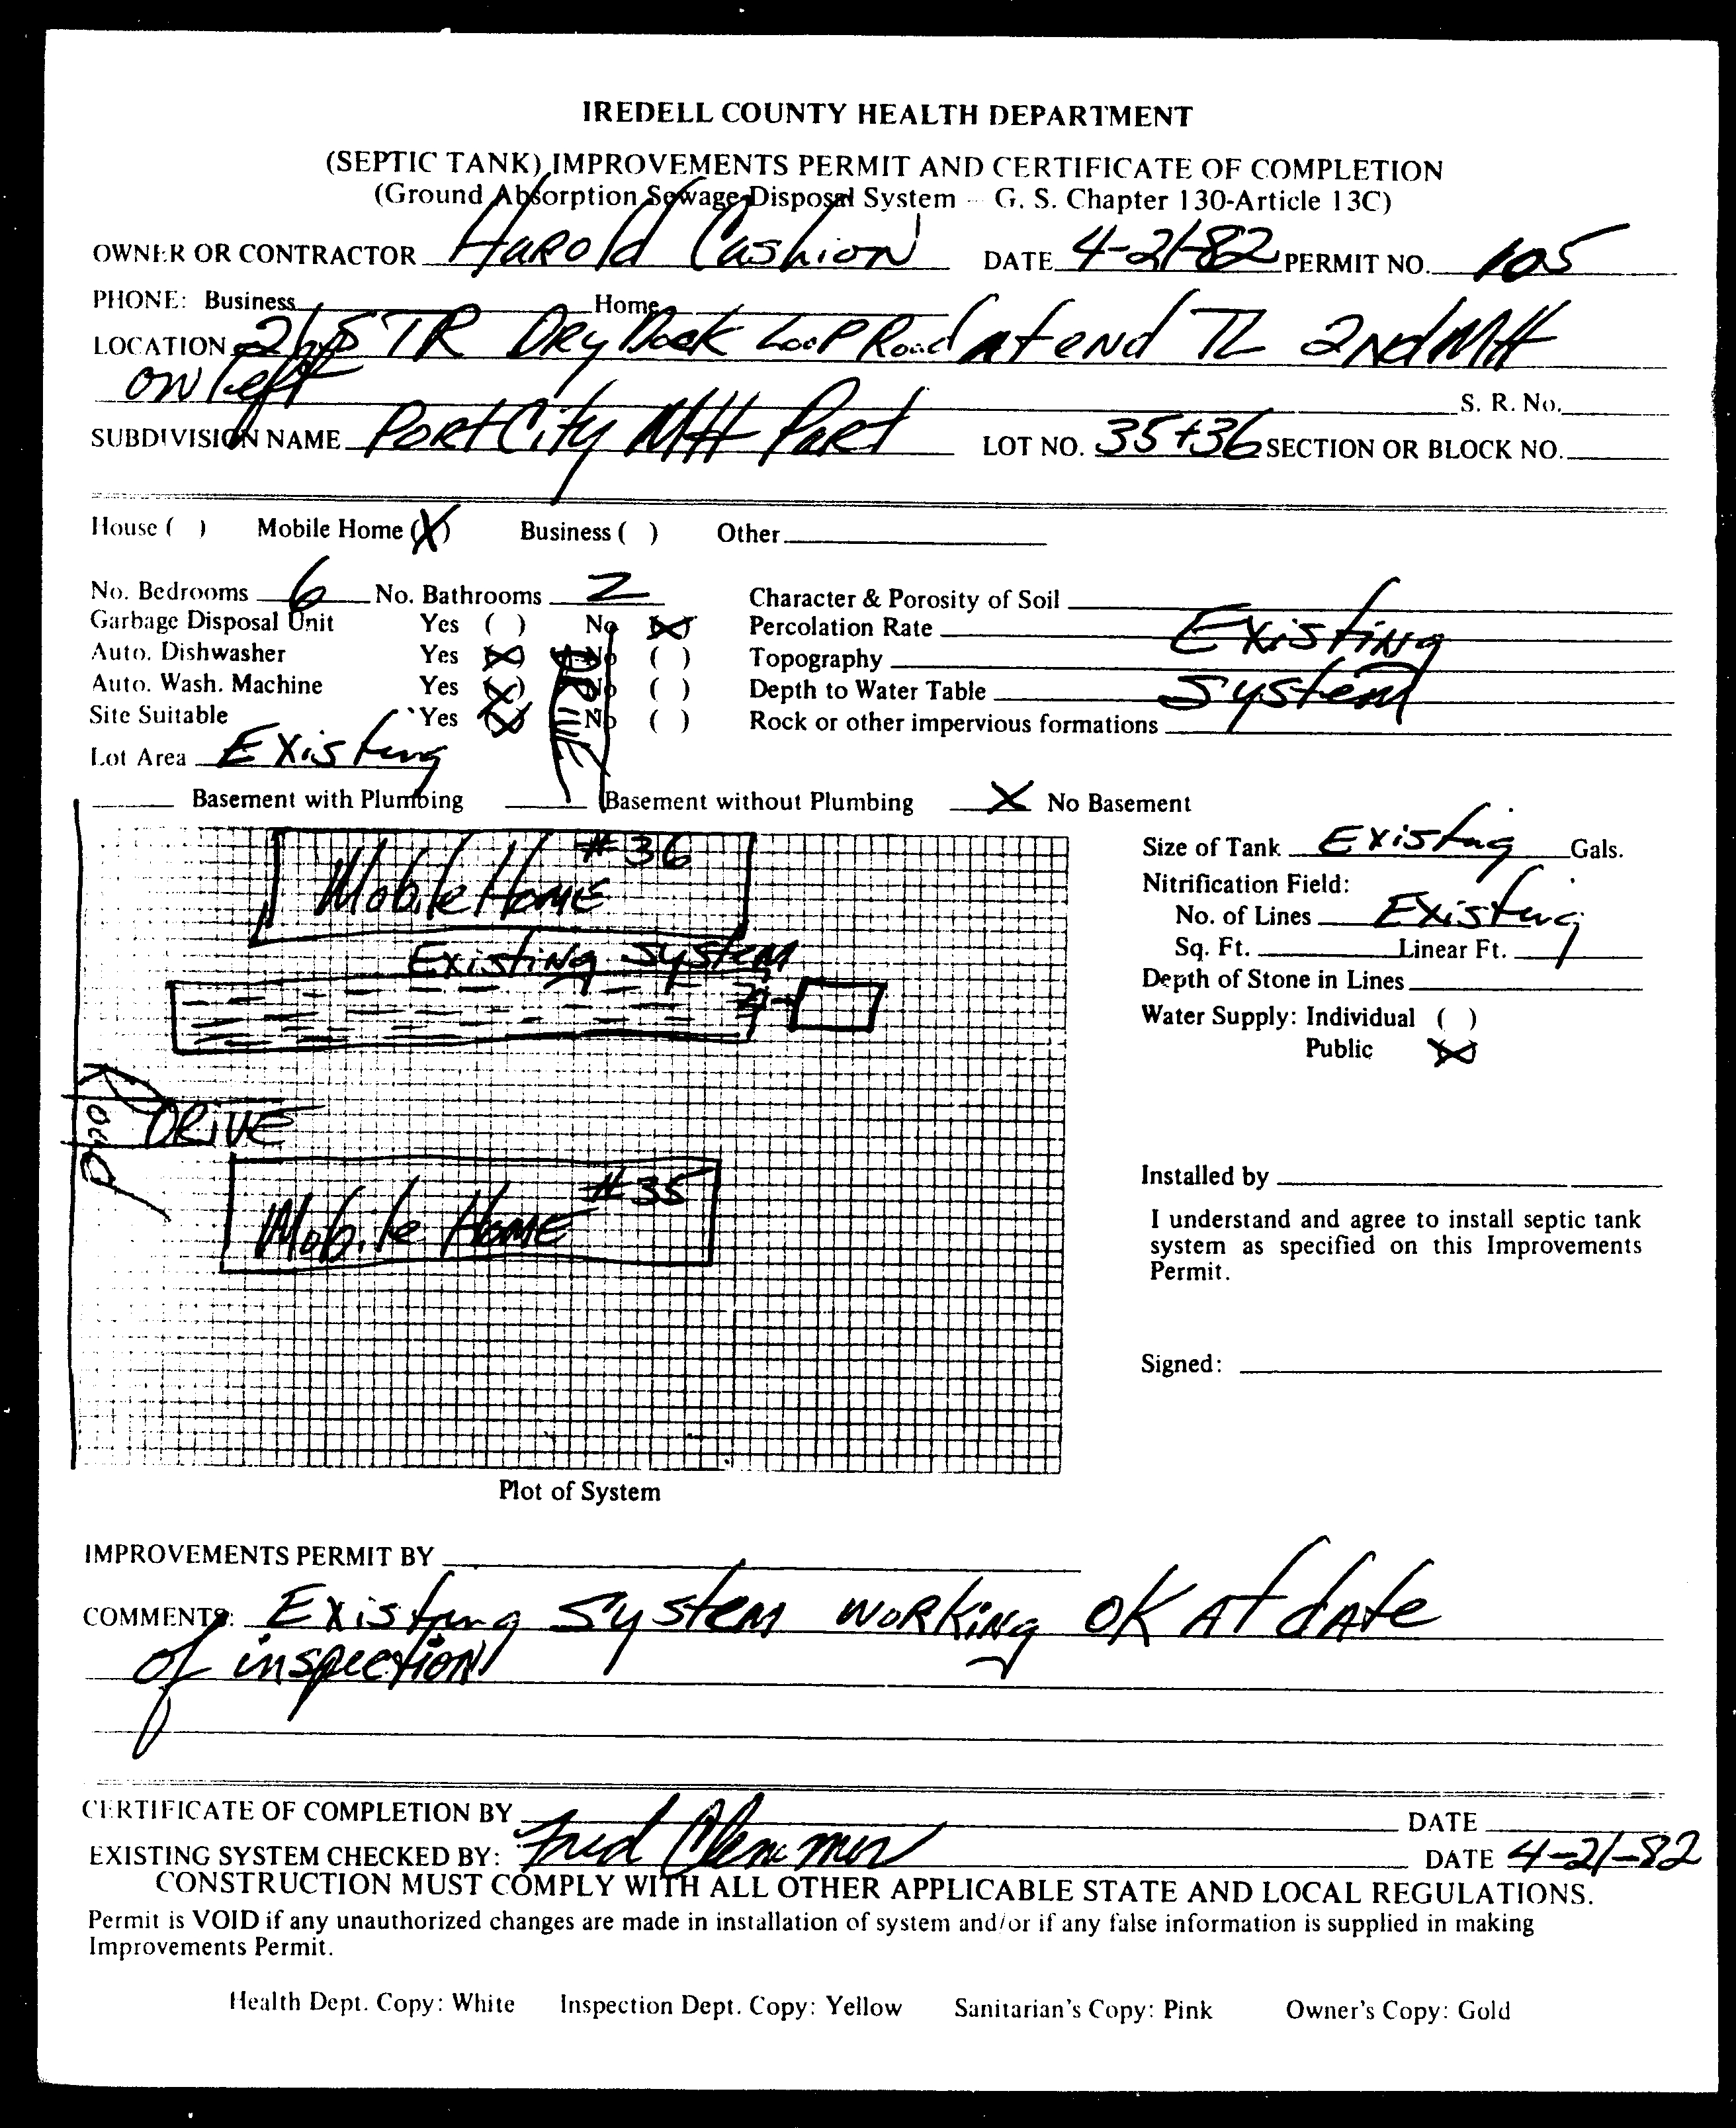 IREDELL COUNTY HEALTH DEPARTMENT
(SEPTIC TANK) IMPROVEMENTS PERMIT AND CERTIFICATE OF COMPLETION
(Ground Absorption Sewage Disposal System - G. S. Chapter 130-Article 13C)
OWNER OR CONTRACTOR Harold Cashion DATE 4-21-82 PERMIT NO. 105
PHONE: Business Home
LOCATION TR Dry Dock Loop Road at end TL 2nd MH
on left
S. R. No.
SUBDIVISION NAME Port City MH Part LOT NO. 35+36 SECTION OR BLOCK NO.
House ( ) Mobile Home (X) Business ( ) Other
No. Bedrooms 6 No. Bathrooms 2 Character & Porosity of Soil
Garbage Disposal Unit Yes ( ) No (X) Percolation Rate Existing
Auto. Dishwasher Yes (X) No ( ) Topography
Auto. Wash. Machine Yes (X) No ( ) Depth to Water Table System
Site Suitable Yes (X) No ( ) Rock or other impervious formations
DRIVE
Lot Area Existing
Basement with Plumbing Basement without Plumbing X No Basement
#36
Mobile Home
Existing System
Road
DRIVE
#35
Mobile Home
Plot of System
Size of Tank Existing Gals.
Nitrification Field:
No. of Lines Existing
Sq. Ft. Linear Ft.
Depth of Stone in Lines
Water Supply: Individual ( )
Public (X)
Installed by
I understand and agree to install septic tank
system as specified on this Improvements
Permit.
Signed:
IMPROVEMENTS PERMIT BY
COMMENTS: Existing System working OK At dAte
of inspection
CERTIFICATE OF COMPLETION BY DATE
EXISTING SYSTEM CHECKED BY: Fred Clemmer DATE 4-21-82
CONSTRUCTION MUST COMPLY WITH ALL OTHER APPLICABLE STATE AND LOCAL REGULATIONS.
Permit is VOID if any unauthorized changes are made in installation of system and/or if any false information is supplied in making
Improvements Permit.
Health Dept. Copy: White Inspection Dept. Copy: Yellow Sanitarian's Copy: Pink Owner's Copy: Gold